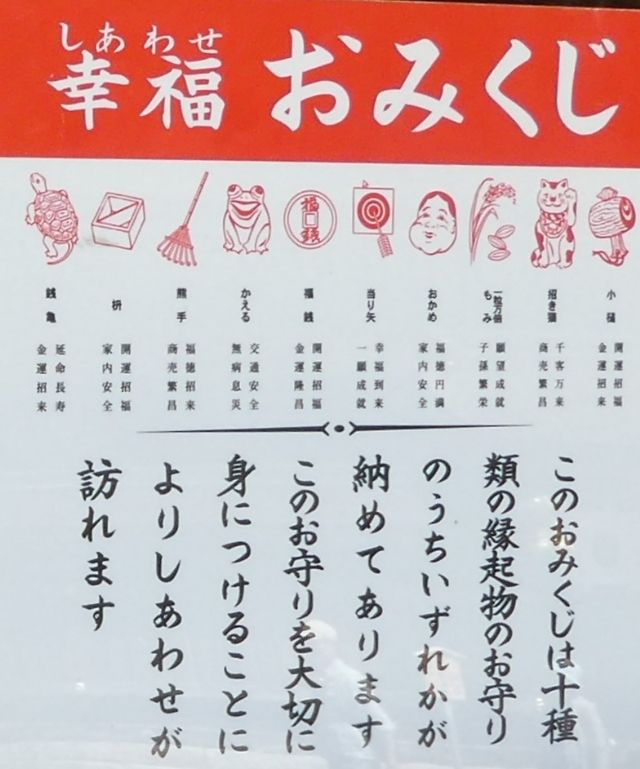 しあわせ
幸福 おみくじ
福銭
小槌
開運招福
金運招来
招き猫
千客万来
商売繁昌
一粒万倍
もみ
願望成就
子孫繁栄
おかめ
福徳円満
家内安全
当り矢
幸福到来
一願成就
福銭
開運招福
金運隆昌
かえる
交通安全
無病息災
熊手
福徳招来
商売繁昌
枡
開運招福
家内安全
銭亀
延命長寿
金運招来
このおみくじは十種
類の縁起物のお守り
のうちいずれかが
納めてあります
このお守りを大切に
身につけることに
よりしあわせが
訪れます